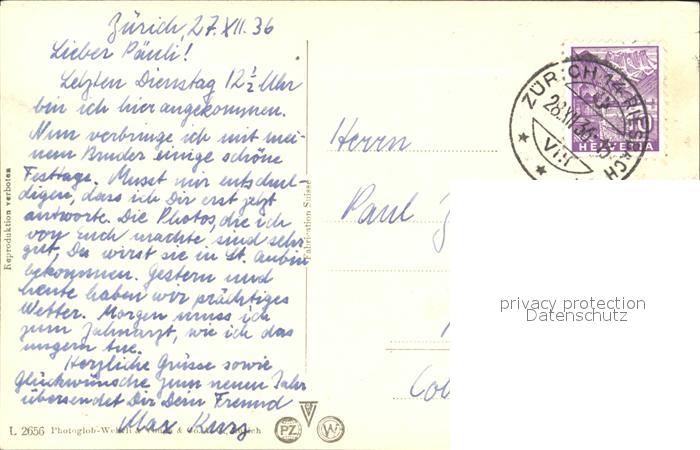 Zürich, 27.XII.36
Lieber Päuli!
Letzten Dienstag 12½ Uhr
bin ich hier angekommen.
Nun verbringe ich mit mei-
nem Bruder einige schöne
Festtage. Musst mir entschul-
digen, dass ich Dir erst jetzt
antworte. Die Photos, die ich
von Euch machte sind sehr
gut, Du wirst sie in St. Aubin
bekommen. Gestern und
heute haben wir prächtiges
Wetter. Morgen muss ich
zum Zahnarzt, wie ich das
ungern tue.
Herzliche Grüsse sowie
Glückwünsche zum neuen Jahr
übersendet Dir Dein Freund
Max Kunz
Herrn
Paul
Reproduktion verboten
Fabrication Suisse
L 2656 Photoglob-Wehrli & & Co. Zürich
PZ
W
ZÜRICH 14 RIESBACH
VIII
HELVETIA
privacy protection
Datenschutz